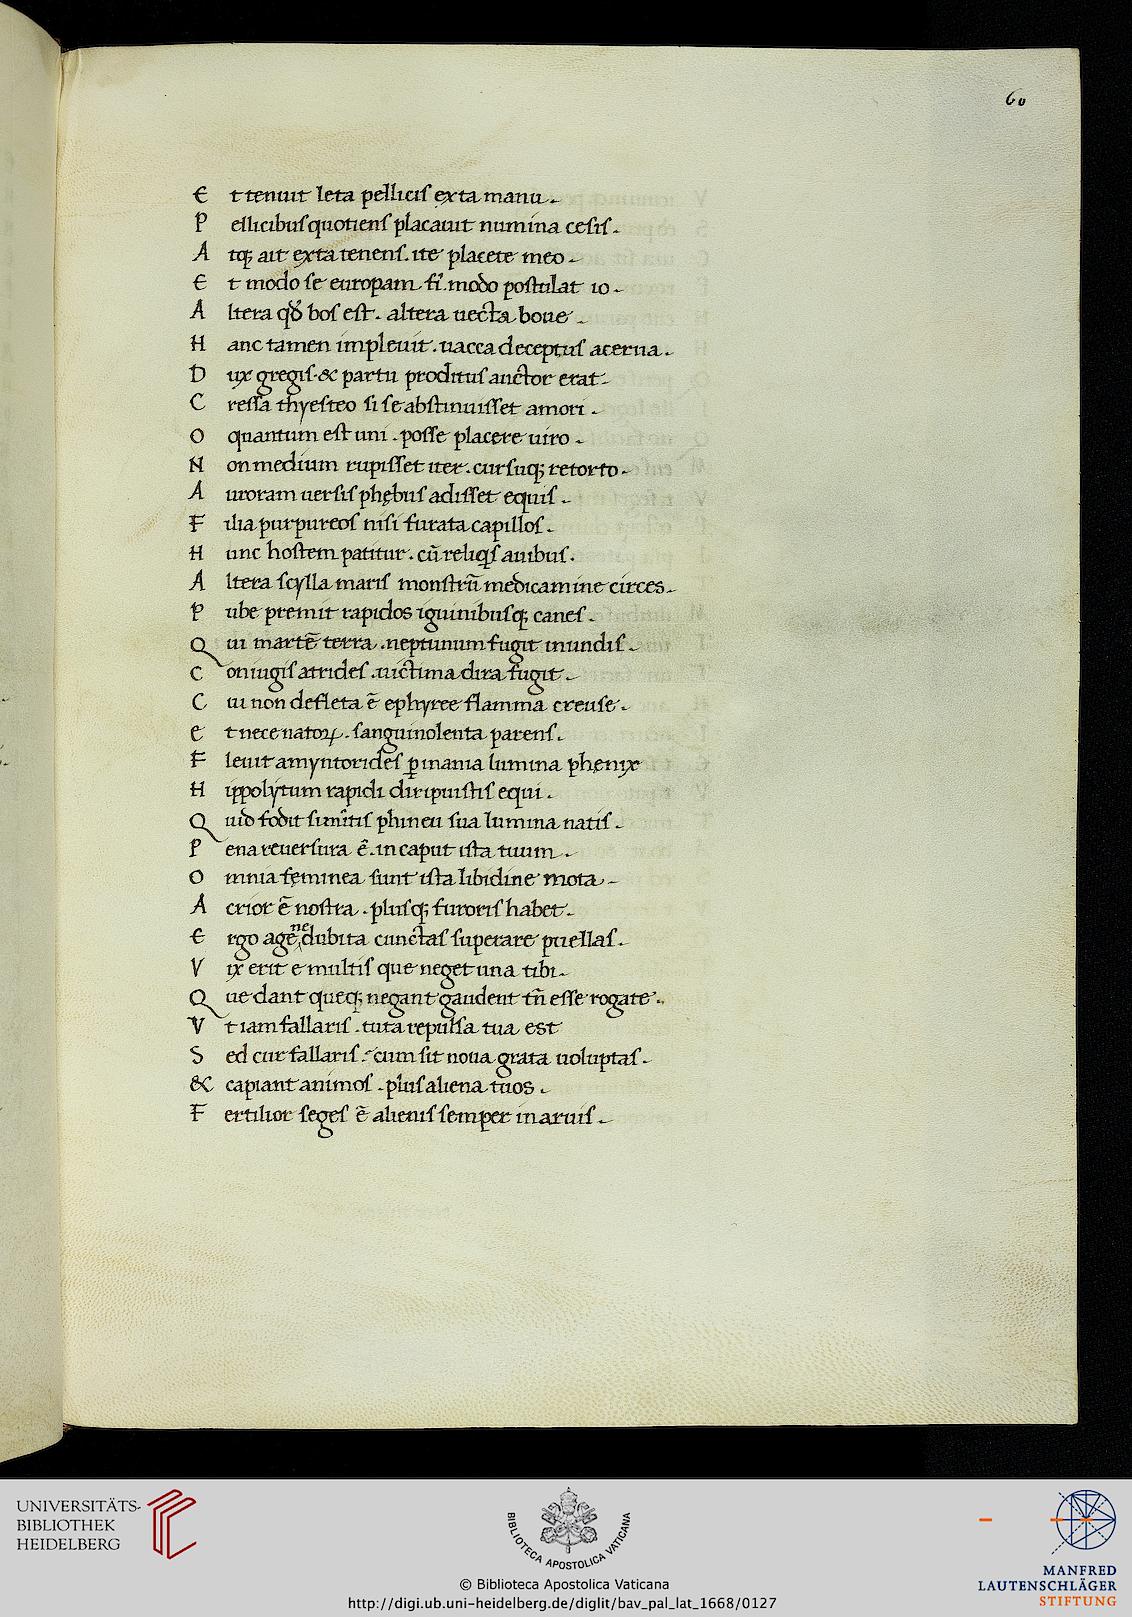 60
E t tenuit leta pellicis exta manu.
P ellicibus quotiens placauit numina cesis.
A tq; ait exta tenens. ite placete meo.
E t modo se europam fi͛. modo postulat io.
A ltera qđ bos est. altera uecta boue.
H anc tamen impleuit. uacca deceptus acerna.
D ux gregis. & partu proditus auctor erat.
C ressa thyesteo si se abstinuisset amori.
O quantum est uni. posse placere uiro.
N on medium rupisset iter. cursuq; retorto.
A uroram uersis phębus adisset equis.
F ilia purpureos nisi furata capillos.
H unc hostem patitur. cū reliq͛s auibus.
A ltera scylla maris monstrū medicamine circes.
P ube premit rapidos iguinibusq; canes.
Q ui martē terra. neptunum fugit inundis.
C oniugis atrides. uictima dira fugit.
C ui non defleta ē ephyree flamma creuse.
e t nece natoꝝ. sanguinolenta parens.
F leuit amyntorides ꝑ inania lumina phęnix
H ippolytum rapidi diripuistis equi.
Q uid fodit īmitis phineu sua lumina natis.
P ena reuersura ē. in caput ista tuum.
O mnia fęminea sunt ista libidine mota.
A crior ē nostra. plusq; furoris habet.
E rgo age ne dubita cunctas superare puellas.
V ix erit e multis que neget una tibi.
Q ue dant queq; negant gaudent tn̄ esse rogate.
V t iam fallaris. tuta repulsa tua est
S ed cur fallaris. cum sit noua grata uoluptas.
& capiant animos. plus aliena tuos.
F ertilior seges ē alienis semper in aruis.
UNIVERSITÄTS-
BIBLIOTHEK
HEIDELBERG
BIBLIOTECA APOSTOLICA VATICANA
© Biblioteca Apostolica Vaticana
http://digi.ub.uni-heidelberg.de/diglit/bav_pal_lat_1668/0127
MANFRED
LAUTENSCHLÄGER
STIFTUNG